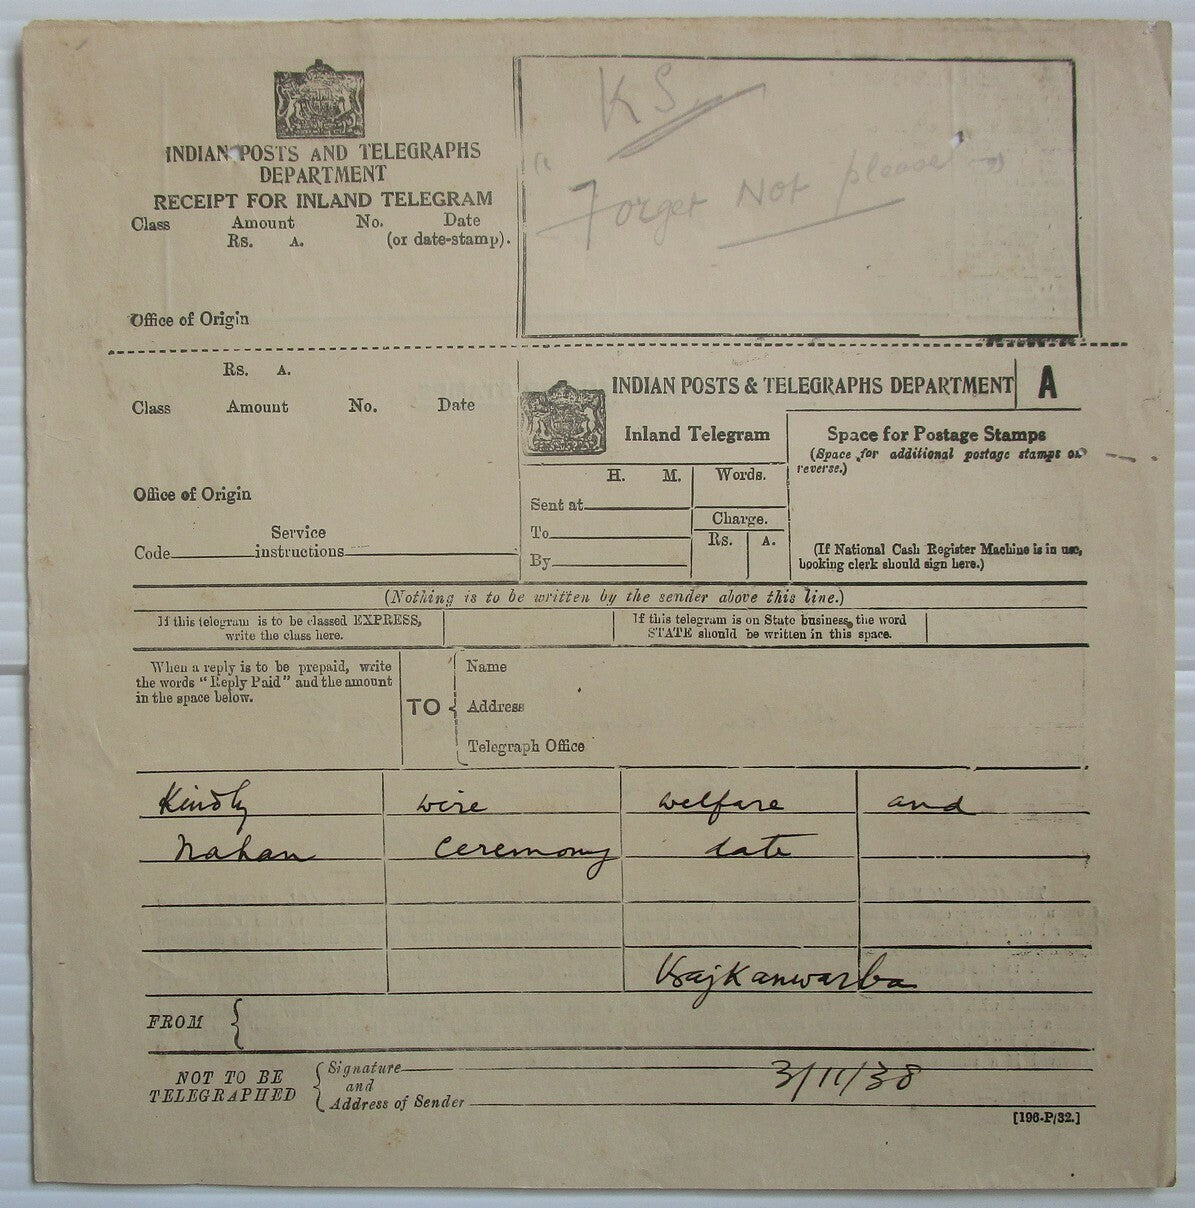 INDIAN POSTS AND TELEGRAPHS
DEPARTMENT
RECEIPT FOR INLAND TELEGRAM
Class Amount No. Date
Rs. A. (or date-stamp).
Office of Origin
KS
"Forget Not please"
Rs. A.
Class Amount No. Date
Office of Origin
Service
Code instructions
INDIAN POSTS & TELEGRAPHS DEPARTMENT A
Inland Telegram
H. M. Words.
Sent at
To
By
Charge.
Rs. A.
Space for Postage Stamps
(Space for additional postage stamps on
reverse.)
(If National Cash Register Machine is in use,
booking clerk should sign here.)
(Nothing is to be written by the sender above this line.)
If this telegram is to be classed EXPRESS,
write the class here.
If this telegram is on State business, the word
STATE should be written in this space.
When a reply is to be prepaid, write
the words "Reply Paid" and the amount
in the space below.
TO
Name
Address
Telegraph Office
Kindly wire welfare and
Nahan ceremony date
RajKanwarba
FROM
NOT TO BE
TELEGRAPHED
Signature
and
Address of Sender
3/11/38
[196-P/32.]